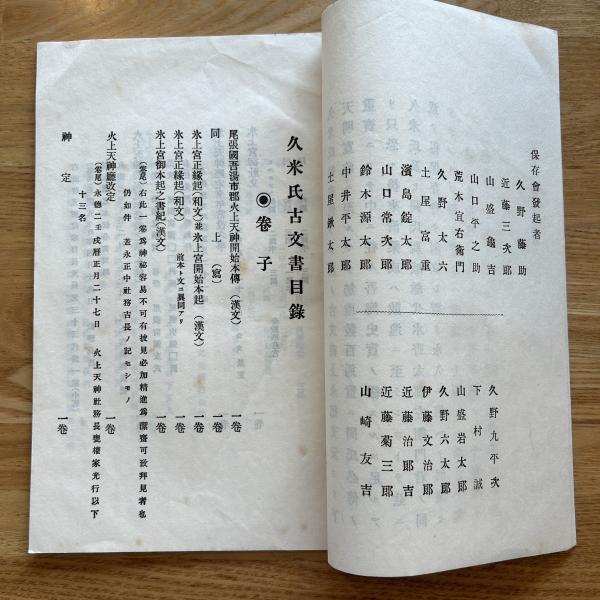 保存會發起者
久野藤助
近藤三次郎
山盛龜吉
山口平之助
荒木宜右衛門
久野太六
土屋富重
濱島錠太郎
山口常次郎
鈴木源太郎
中井平太郎
土屋鍬太郎
久野九平次
下村誠
山盛岩太郎
久野六太郎
伊藤文治郎
近藤治郎吉
近藤菊三郎
山崎友吉
久米氏古文書目錄
◉卷子
尾張國吾湯市郡火上天神開始本傳（漢文） 一卷
同 上（寫） 一卷
氷上宮正緣起（和文）並氷上宮開始本起（漢文） 一卷
氷上宮正緣起（和文） 前本ト文ニ異同アリ 一卷
氷上宮御本起之書紀（漢文） 一卷
（卷尾）右此一卷爲神祕容易不可有披見必加精進爲潔齋可致拜見者也
仍如件 蓋永正中社務吉長ノ記セシモノ
火上天神廳改定 一卷
（卷尾）永德二壬戌曆正月二十七日 火上天神社務長甕棲家光行以下
十三名
神定 一卷